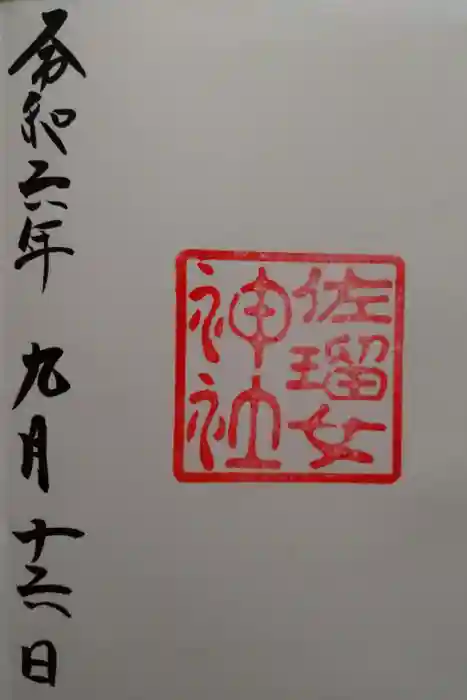 佐瑠女
神社
令和六年 九月 十六日